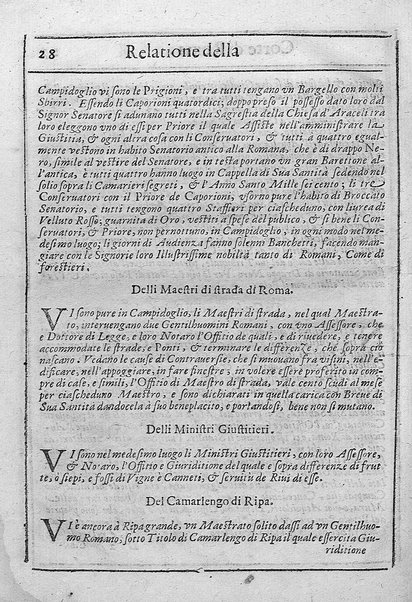 28 Relatione della
Campidoglio vi sono le Prigioni, e tra tutti tengano vn Bargello con molti
Sbirri. Essendo li Caporioni quatordici; doppo preso il possesso dato loro dal
Signor Senatore si adunano tutti nella Sagrestia della Chiesa d'Araceli tra
loro eleggono vno di essi per Priore il quale Assiste nell'amministrare la
Giustitia, & ogni altra cosa con li Conseruatori, & tutti à quattro egual-
mente vestono in habito Senatorio antico alla Romana, che è di drappo Ne-
ro, simile al vestire del Senatore, e in testa portano vn gran Barettone al-
l'antica, è tutti quattro hanno luogo in Cappella di Sua Santità sedendo nel
solio sopra li Camarieri segreti, & l'Anno Santo Mille sei cento; li tre
Conseruatori con il Priore de Caporioni, vsorno pure l'habito di Broccato
Senatorio, e tutti tengono quattro Staffieri per ciascheduno, con liurea di
Velluto Rosso, guarnita di Oro, vestiti à spese del publico, & si bene li Con-
seruatori, & Priore, non pernottano, in Campidoglio, in ogni modo nel me-
desimo luogo; li giorni di Audienza fanno solenni Banchetti, facendo man-
giare con le Signorie loro Illustrissime nobiltà tanto di Romani, Come di
forestieri.
Delli Maestri di strada di Roma.
VI sono pure in Campidoglio, li Maestri di strada, nel qual Maestra-
to, interuengano due Gentilhuomini Romani, con vno Assessore, che
e Dottore di Legge, e loro Notaro l'Offitio de quali, e di riuedere, e tenere
accommodate le strade, e Ponti, & terminare le differenze, chè sopra ciò
nascano. Vedano le cause di Controuersie, che si muouano fra visini, nell'e-
dificare, nell'appoggiare, in fare finestre, in volere essere proferito in com-
pre di case, e simili, l'Offitio di Maestro di strada, vale cento scudi al mese
per ciascheduno Maestro, e sono dichiarati in quella carica con Breue di
Sua Santità dandocela à suo beneplacito, e portandosi, bene non si mutano.
Delli Ministri Giustitieri.
VI sono nel medesimo luogo li Ministri Giustitieri, con loro Assessore,
& Notaro, l'Offitio e Giuriditione del quale e sopra differenze di frut-
te, o siepi, e fossi di Vigne è Canneti, & seruitù de Riui di esse.
Del Camarlengo di Ripa.
VI è ancora à Ripa grande, vn Maestrato solito dassi ad vn Gentilhuo-
mo Romano, sotto Titolo di Camarlengo di Ripa il quale essercita Giu-
riditione